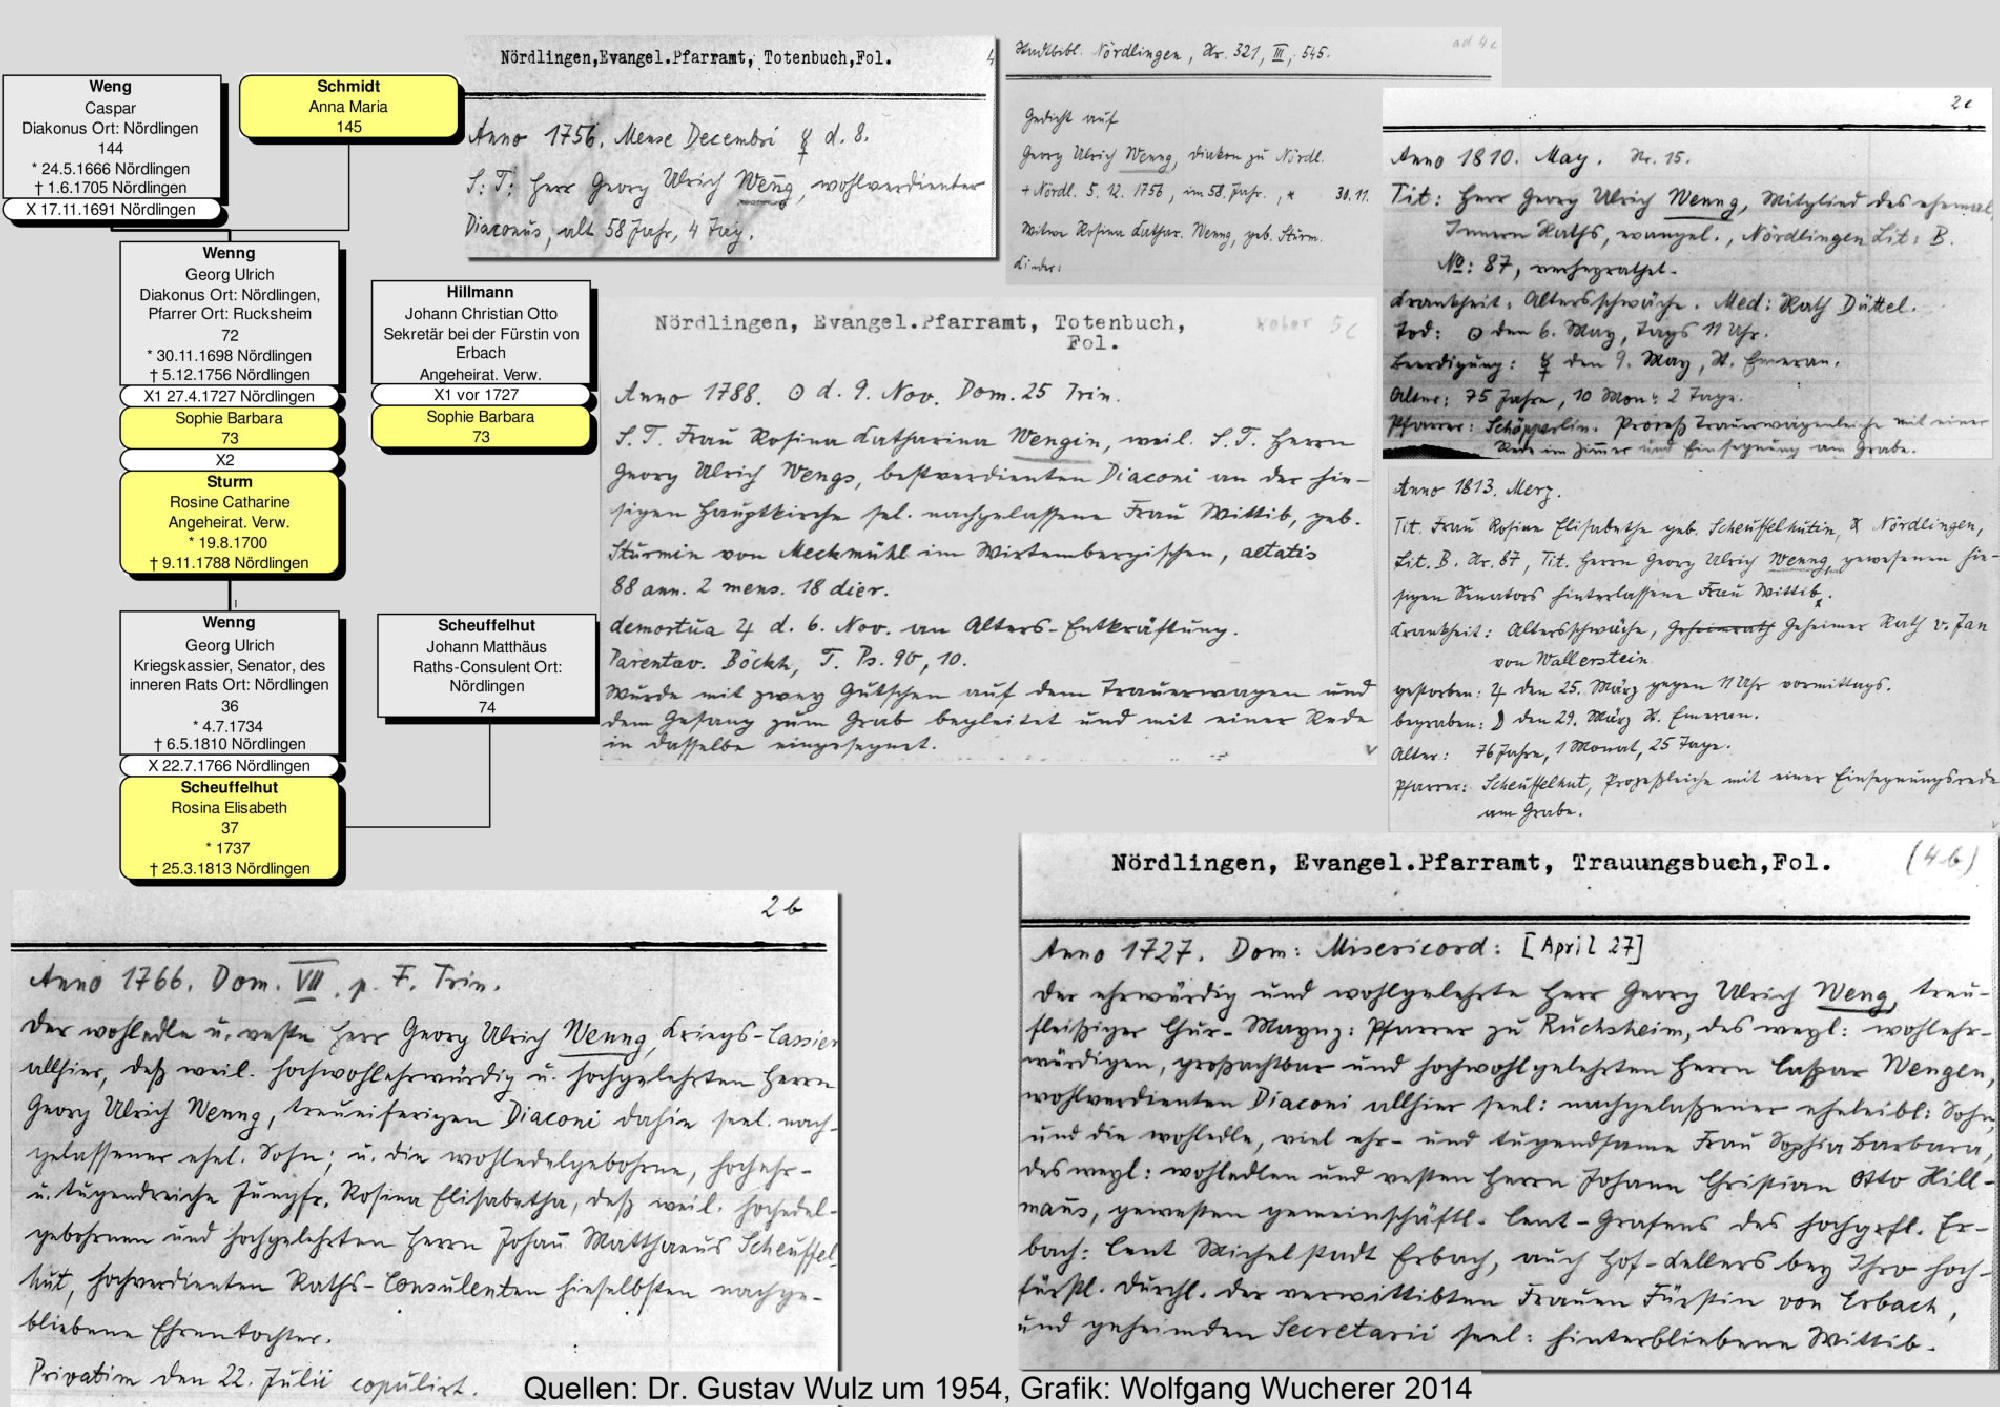 Weng
Caspar
Diakonus Ort: Nördlingen
144
* 24.5.1666 Nördlingen
† 1.6.1705 Nördlingen
X 17.11.1691 Nördlingen
Schmidt
Anna Maria
145
Wenng
Georg Ulrich
Diakonus Ort: Nördlingen,
Pfarrer Ort: Rucksheim
72
* 30.11.1698 Nördlingen
† 5.12.1756 Nördlingen
X1 27.4.1727 Nördlingen
Sophie Barbara
73
X2
Sturm
Rosine Catharine
Angeheirat. Verw.
* 19.8.1700
† 9.11.1788 Nördlingen
Hillmann
Johann Christian Otto
Sekretär bei der Fürstin von
Erbach
Angeheirat. Verw.
X1 vor 1727
Sophie Barbara
73
Wenng
Georg Ulrich
Kriegskassier, Senator, des
inneren Rats Ort: Nördlingen
36
* 4.7.1734
† 6.5.1810 Nördlingen
X 22.7.1766 Nördlingen
Scheuffelhut
Rosina Elisabeth
37
* 1737
† 25.3.1813 Nördlingen
Scheuffelhut
Johann Matthäus
Raths-Consulent Ort:
Nördlingen
74
Nördlingen,Evangel.Pfarramt, Totenbuch,Fol.
Anno 1756. Mense Decembri ☿ d. 8.
S. T. Herr Georg Ulrich Weng, wohlverdienter
Diaconus, alt 58 Jahr, 4 Tag.
ad 4c
Stadtbibl. Nördlingen, Nr. 321, III, 545.
Gedicht auf
Georg Ulrich Wenng, diakon zu Nördl.
+ Nördl. 5. 12. 1756, im 58. Jahr., * 30.11.
Witwe Rosina Kathar. Wenng, geb. Sturm.
Kinder:
Nördlingen, Evangel.Pfarramt, Totenbuch,
Fol.
5c
Anno 1788. ☉ d. 9. Nov. Dom. 25 Trin.
S. T. Frau Rosina Katharina Wengin, weil. S. T. Herrn
Georg Ulrich Wengs, bestverdienten Diaconi an der hie-
sigen Hauptkirche sel. nachgelassene Frau Wittib, geb.
Sturmin von Meckmühl im Wirtembergischen, aetatis
88 ann. 2 mens. 18 dier.
demortua ♃ d. 6. Nov. an Alters-Entkräftung.
Parentav. Böckh, T. Ps. 90, 10.
Wurde mit zwey Gutschen auf dem Trauerwagen und
dem Gesang zum Grab begleitet und mit einer Rede
in dasselbe eingesegnet.
2c
Anno 1810. May. Nr. 15.
Tit: Herr Georg Ulrich Wenng, Mitglied des ehemal.
Innern Raths, evangel., Nördlingen Lit: B.
No: 87, verheyrathet.
Krankheit: Altersschwäche. Med: Rath Düttel.
Tod: ☉ den 6. May, Tags 11 Uhr.
Beerdigung: ☿ den 9. May, St. Emeran.
Alter: 75 Jahre, 10 Mon: 2 Tage.
Pfarrer: Schöpperlin. Proceß Trauerwagenleiche mit einer
Rede im Zimmer und Einsegnung am Grabe.
Anno 1813. Merz.
Tit. Frau Rosine Elisabethe geb. Scheuffelhutin, Nördlingen,
Lit. B. Nr. 87, Tit. Herrn Georg Ulrich Wenng, gewesenen hie-
sigen Senators hinterlassene Frau Wittib.
Krankheit: Altersschwäche, Geheimrath Geheimer Rath v. Jan
von Wallerstein
gestorben: ♃ den 25. März gegen 11 Uhr vormittags.
begraben: ☽ den 29. März St. Emeran.
Alter: 76 Jahre, 1 Monat, 25 Tage.
Pfarrer: Scheuffelhut, Prozeßleiche mit einer Einsegnungsrede
am Grabe.
2b
Anno 1766. Dom. VII. p. F. Trin.
Der wohledle u. veste Herr Georg Ulrich Wenng, Kriegs-Cassier
allhier, deß weil. hochwohlehrwürdig u. hochgelehrten Herrn
Georg Ulrich Wenng, treueiferigen Diaconi dahie seel. nach-
gelassener ehel. Sohn; u. die wohledelgebohrne, hochehr-
u. tugendreiche Jungfr. Rosina Elisabetha, deß weil. hochedel-
gebohrnen und hochgelehrten Herrn Johañ Matthaeus Scheuffel-
hut, hochverdienten Raths-Consulenten hieselbsten nachge-
bliebene Ehrentochter.
Privatim den 22. Julii copulirt.
Nördlingen, Evangel.Pfarramt, Trauungsbuch,Fol.
(4b)
Anno 1727. Dom: Misericord: [April 27]
Der ehrwürdig und wohlgelehrte Herr Georg Ulrich Weng, treu-
fleißiger Chur-Maynz: Pfarrer zu Ruchsheim, des weyl: wohlehr-
würdigen, großachtbar und hochwohlgelehrten Herrn Caspar Wengen,
wohlverdienten Diaconi allhier seel: nachgelaßener eheleibl: Sohn,
und die wohledle, viel ehr- und tugendsame Frau Sophia Barbara,
des weyl: wohledlen und vesten Herrn Johann Christian Otto Hill-
manns, gewesten gemeinschäftl. Cent-Grafens des hochgrfl. Er-
bach: Cent Michelstadt Erbach, auch Hof-Kellers bey Ihro hoch-
fürstl. Durchl. der verwittibten Frauen Fürstin von Erbach,
und geheimden Secretarii seel: hinterbliebene Wittib.
Quellen: Dr. Gustav Wulz um 1954, Grafik: Wolfgang Wucherer 2014